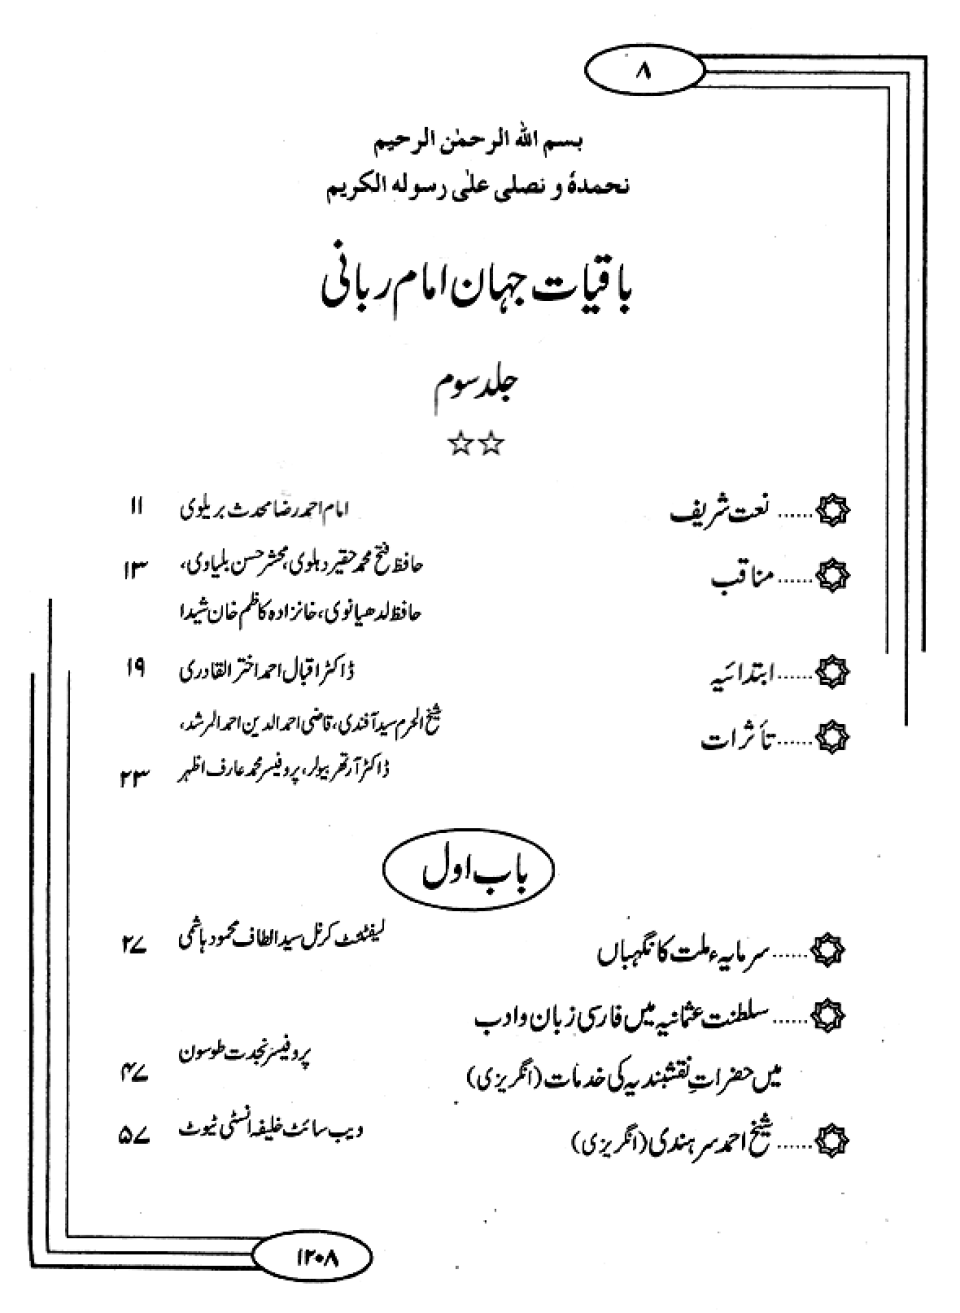 ۸
بسم الله الرحمٰن الرحیم
نحمدہٗ و نصلی علٰی رسولہ الکریم
باقیات جہان امام ربانی
جلد سوم
☆☆
...... نعت شریف امام احمد رضا محدث بریلوی ۱۱
...... مناقب حافظ فتح محمد حقیر دہلوی، محشر حسن بلیاوی، ۱۳
حافظ لدھیانوی، خانزادہ کاظم خان شیدا
...... ابتدائیہ ڈاکٹر اقبال احمد اختر القادری ۱۹
...... تأثرات شیخ الحرم سید آفندی، قاضی احمد الدین احمد المرشد،
ڈاکٹر آرتھر بیولر، پروفیسر محمد عارف اظہر ۲۳
باب اول
...... سرمایہء ملت کا نگہباں لیفٹنٹ کرنل سید الطاف محمود ہاشمی ۲۷
...... سلطنت عثمانیہ میں فارسی زبان و ادب
میں حضراتِ نقشبندیہ کی خدمات (انگریزی) پروفیسر نجدت طوسون ۴۷
...... شیخ احمد سرہندی (انگریزی) ویب سائٹ خلیفہ انسٹی ٹیوٹ ۵۷
۱۲۰۸